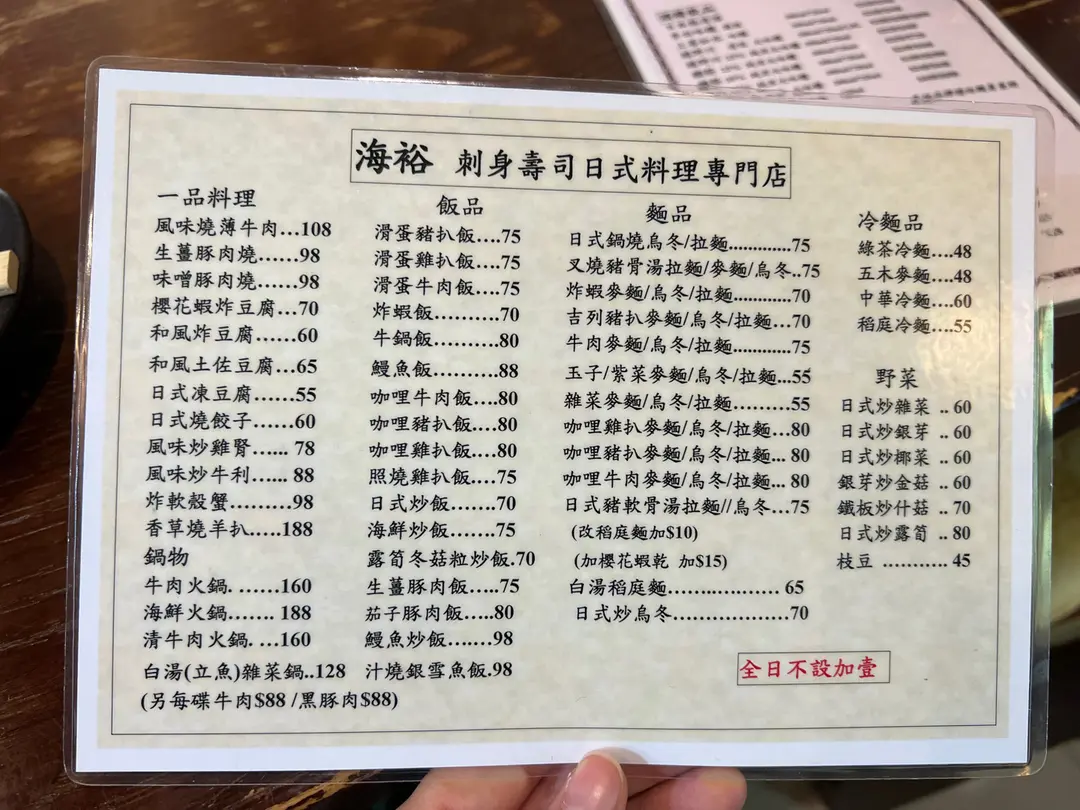 海裕 刺身壽司日式料理專門店
一品料理
風味燒薄牛肉...108
生薑豚肉燒......98
味噌豚肉燒......98
櫻花蝦炸豆腐...70
和風炸豆腐......60
和風土佐豆腐...65
日式凍豆腐......55
日式燒餃子......60
風味炒雞腎...... 78
風味炒牛利...... 88
炸軟殼蟹.........98
香草燒羊扒.....188
鍋物
牛肉火鍋. .......160
海鮮火鍋....... 188
清牛肉火鍋. ...160
白湯(立魚)雜菜鍋..128
(另每碟牛肉$88 /黑豚肉$88)
飯品
滑蛋豬扒飯....75
滑蛋雞扒飯....75
滑蛋牛肉飯....75
炸蝦飯..........70
牛鍋飯..........80
鰻魚飯..........88
咖哩牛肉飯....80
咖哩豬扒飯....80
咖哩雞扒飯....80
照燒雞扒飯....75
日式炒飯.......70
海鮮炒飯.......75
露筍冬菇粒炒飯.70
生薑豚肉飯.....75
茄子豚肉飯.....80
鰻魚炒飯.......98
汁燒銀雪魚飯.98
麵品
日式鍋燒烏冬/拉麵.............75
叉燒豬骨湯拉麵/麥麵/烏冬..75
炸蝦麥麵/烏冬/拉麵............70
吉列豬扒麥麵/烏冬/拉麵...70
牛肉麥麵/烏冬/拉麵............75
玉子/紫菜麥麵/烏冬/拉麵...55
雜菜麥麵/烏冬/拉麵.........55
咖哩雞扒麥麵/烏冬/拉麵...80
咖哩豬扒麥麵/烏冬/拉麵... 80
咖哩牛肉麥麵/烏冬/拉麵... 80
日式豬軟骨湯拉麵//烏冬...75
(改稻庭麵加$10)
(加櫻花蝦乾 加$15)
白湯稻庭麵.................. 65
日式炒烏冬....................70
冷麵品
綠茶冷麵....48
五木麥麵....48
中華冷麵....60
稻庭冷麵....55
野菜
日式炒雜菜 .. 60
日式炒銀芽 .. 60
日式炒椰菜 .. 60
銀芽炒金菇 .. 60
鐵板炒什菇 .. 70
日式炒露筍 .. 80
枝豆 ............ 45
全日不設加壹